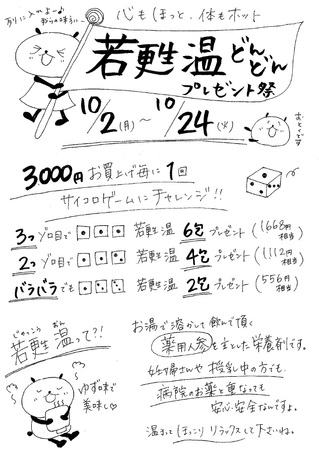 列に入れよー♪
心も ほっと、体もホット
若甦温 どんどん
プレゼント祭
10/2(月)～10/24(火)
おとくです
3000円お買上げ毎に1回
サイコロゲームにチャレンジ!!
3つゾロ目で 若甦温 6包プレゼント (1668円相当)
2つゾロ目で 若甦温 4包プレゼント (1112円相当)
バラバラでも 若甦温 2包プレゼント (556円相当)
じゃっこう おん
若甦温って?!
お湯で溶かして飲んで頂く
薬用人参を主とした栄養剤です。
妊婦さんや授乳中の方でも
病院のお薬と重なっても
安心・安全なんですよ。
温まってほっこり リラックスして下さいね。
ゆず味で
美味し♡